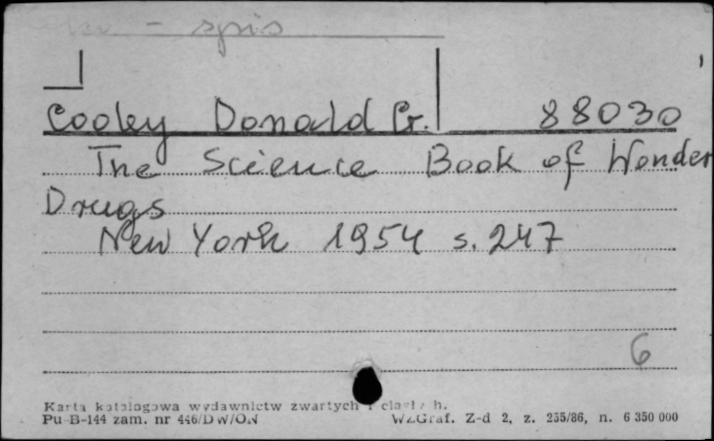 - spis
Cooley Donald G. 88030
The Science Book of Wonder
Drugs
New York 1954 s. 247
6
Karta katalogowa wydawnictw zwartych i h.
Pu-B-144 zam. nr 446/DW/ON WZGraf. Z-d 2, z. 235/86, n. 6 350 000